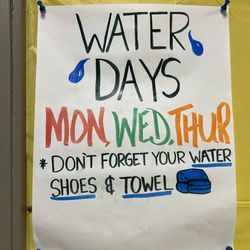 WATER
DAYS
MON, WED, THUR
* DON'T FORGET YOUR WATER
SHOES & TOWEL